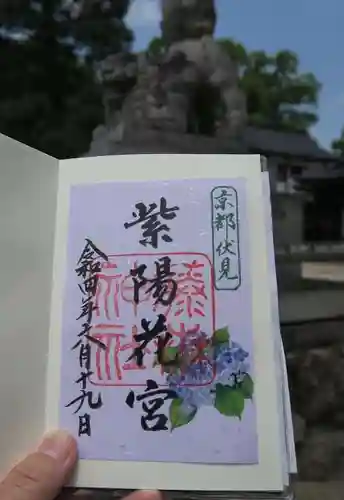 京都伏見
紫陽花宮
藤森神社
令和四年六月十九日